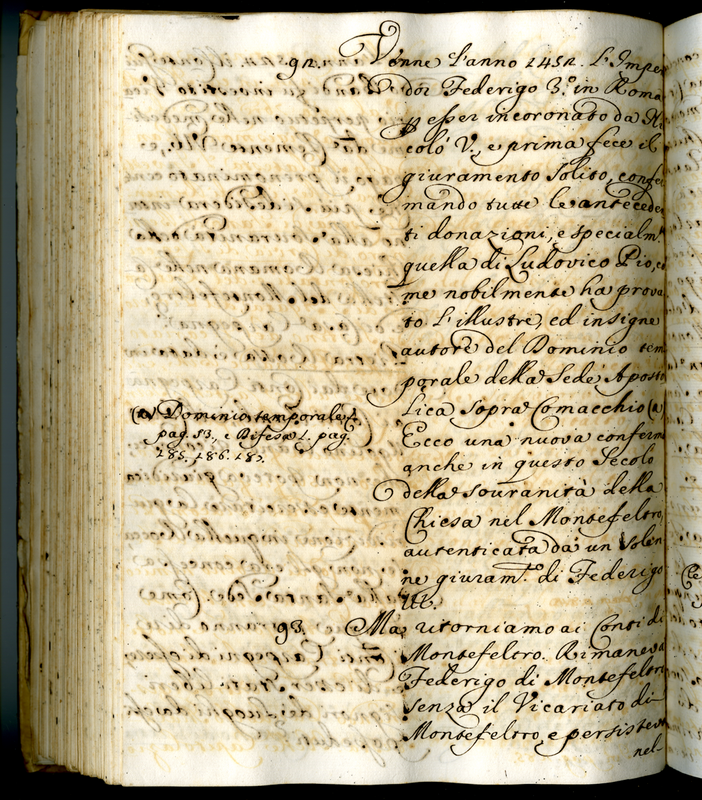 92. Venne l'anno 1452. L'Impe
dor Federigo 3.º in Roma
p esser incoronato da Ni
colò V., e prima fece il
giuramento solito, confer
mando tutte le anteceden
ti donazioni, e specialm.te
quella di Ludovico Pio, co
me nobilmente ha prova
to l'illustre, ed insigne
autore del Dominio tem
porale della Sede Aposto
lica sopra Comacchio (a
Ecco una nuova conferm
anche in questo Secolo
della souranità della
Chiesa nel Montefeltro,
autenticata da un solen
ne giuram.to di Federigo
III.
(a) Dominio temporale
pag. 53., e Difesa 1. pag.
185. 186. 187.
93. Ma ritorniamo ai Conti di
Montefeltro. Rimaneva
Federigo di Montefeltro
senza il Vicariato di
Montefeltro, e persisteva
nel-